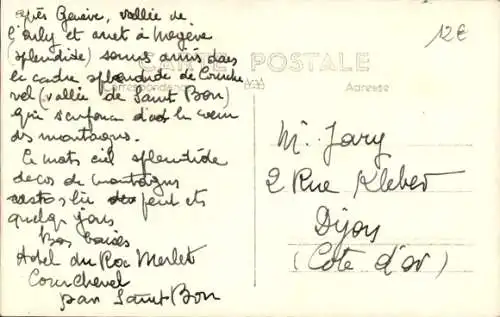 après Genève, vallée de
l'Arly et arrêt à Megève
(splendide) sommes arrivés dans
le cadre splendide de Courche
vel (vallée de Saint Bon)
qui s'enfonce d'ad le cœur
des montagnes.
Ce matin ciel splendide
décor de montagnes
peut etr
quelqu jours
Bons baisers
Hotel du Roc Merlet
Courchevel
par Saint-Bon
CARTE POSTALE
Correspondance
Adresse
12€
M. Jary
2 Rue Kleber
Dijon
(Cote d'or)